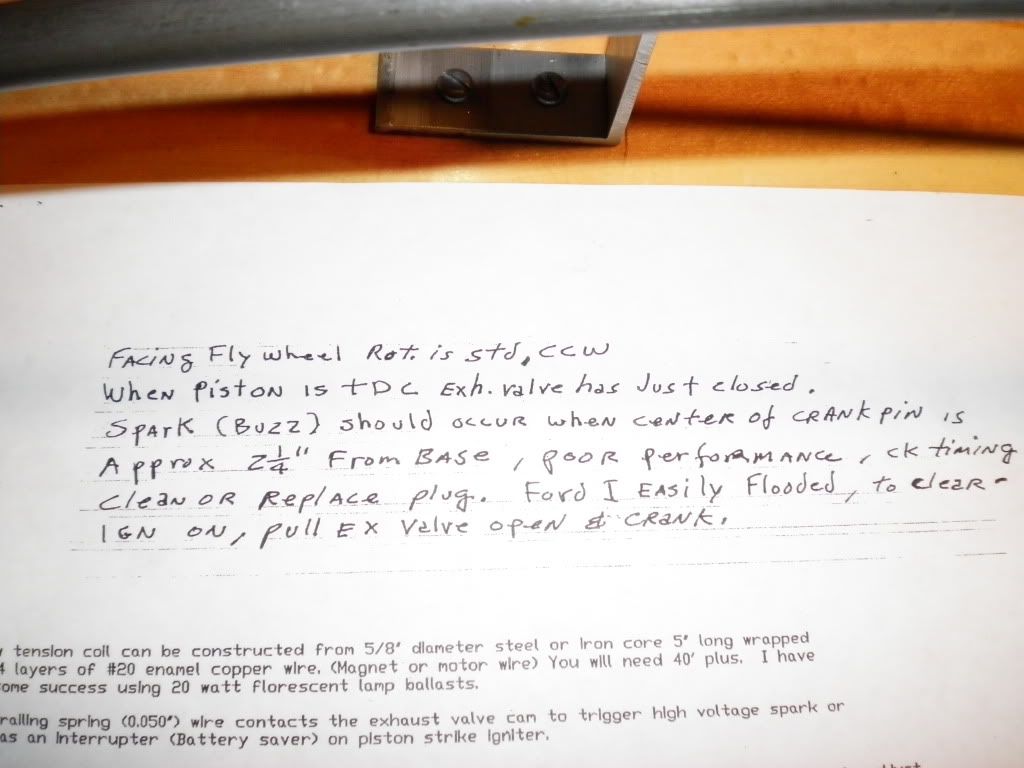 FACING Fly wheel Rot. is std, CCW
When Piston is tDC Exh. valve has Just closed.
SPARK (Buzz) should occur when center of CRANK pin is
Approx 2 1/4" From BASE, POOR performance, ck timing
Clean OR Replace plug. Ford I EASily Flooded, to clear -
IGN ON, pull EX Valve open & CRANK.
tension coil can be constructed from 5/8" diameter steel or iron core 5" long wrapped
4 layers of #20 enamel copper wire. (Magnet or motor wire) You will need 40' plus. I have
ome success using 20 watt florescent lamp ballasts.
railing spring (0.050") wire contacts the exhaust valve cam to trigger high voltage spark or
as an interrupter (Battery saver) on piston strike igniter.